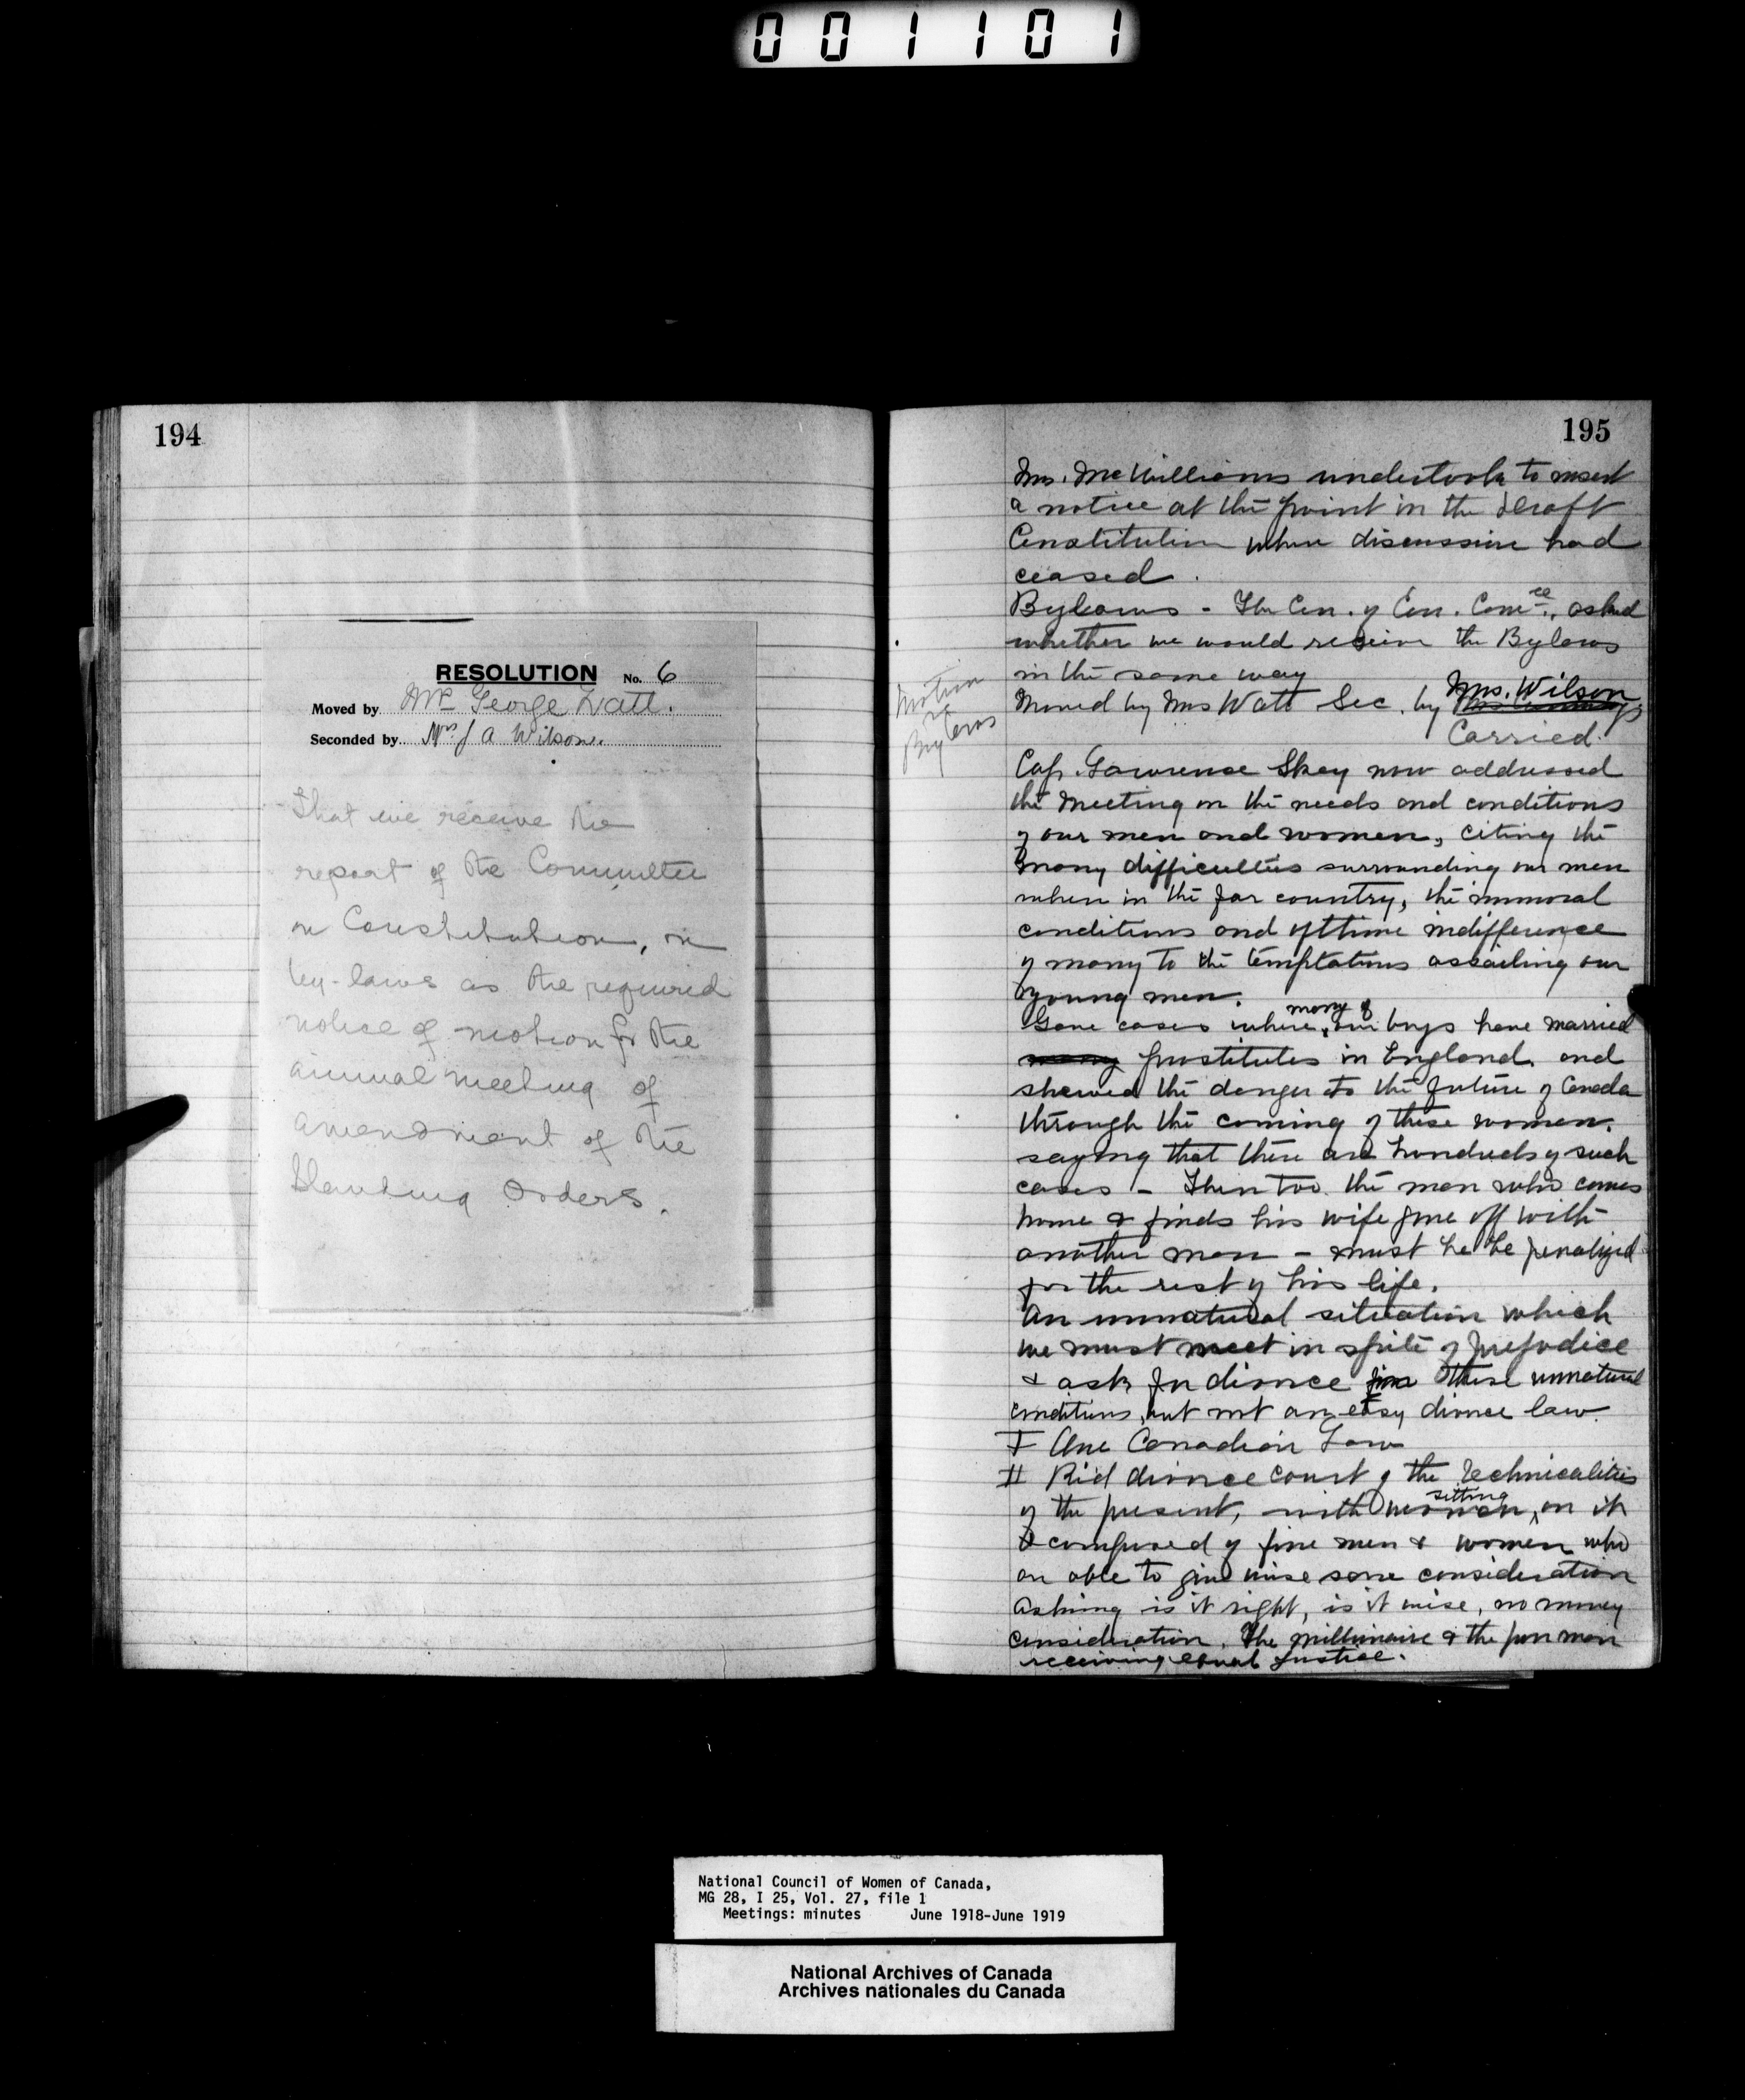 001101
194
RESOLUTION No. 6
Moved by Mrs George Watt.
Seconded by Mrs J A Wilson.
That we receive the
report of the Committee
on Constitution, on
by-laws as the required
notice of motion for the
annual meeting of
amendment of the
Standing Orders.
195
Mrs. McWilliams undertook to insert
a notice at the point in the draft
Constitution where discussion had
ceased.
Bylaws - The Con. of Con. Comce. asked
whether we would receive the Bylaws
in the same way
Motion
re
Bylaws
Moved by Mrs Watt Sec. by Mrs. Wilson
Carried.
Cap. Lawrence Skey now addressed
the meeting on the needs and conditions
of our men and women, citing the
many difficulties surrounding our men
when in the far country, the immoral
conditions and ofttime indifference
of many to the temptations assailing our
young men.
Gave cases where many of our boys have married
many prostitutes in England and
shewed the danger to the future of Canada
through the coming of these women.
saying that there are hundreds of such
cases - Then too the man who comes
home & finds his wife gone off with
another man - must he be penalized
for the rest of his life.
An unnatural situation which
we must meet in spite of prejudice
& ask for divorce for these unnatural
conditions, but not an easy divorce law.
I One Canadian Law
II Rid divorce court of the technicalities
of the present, with women sitting on it
& composed of fine men & women who
are able to give wise sane consideration
Asking is it right, is it wise, no money
consideration. The millionaire & the poor man
receiving equal justice.
National Council of Women of Canada,
MG 28, I 25, Vol. 27, file 1
Meetings: minutes June 1918-June 1919
National Archives of Canada
Archives nationales du Canada